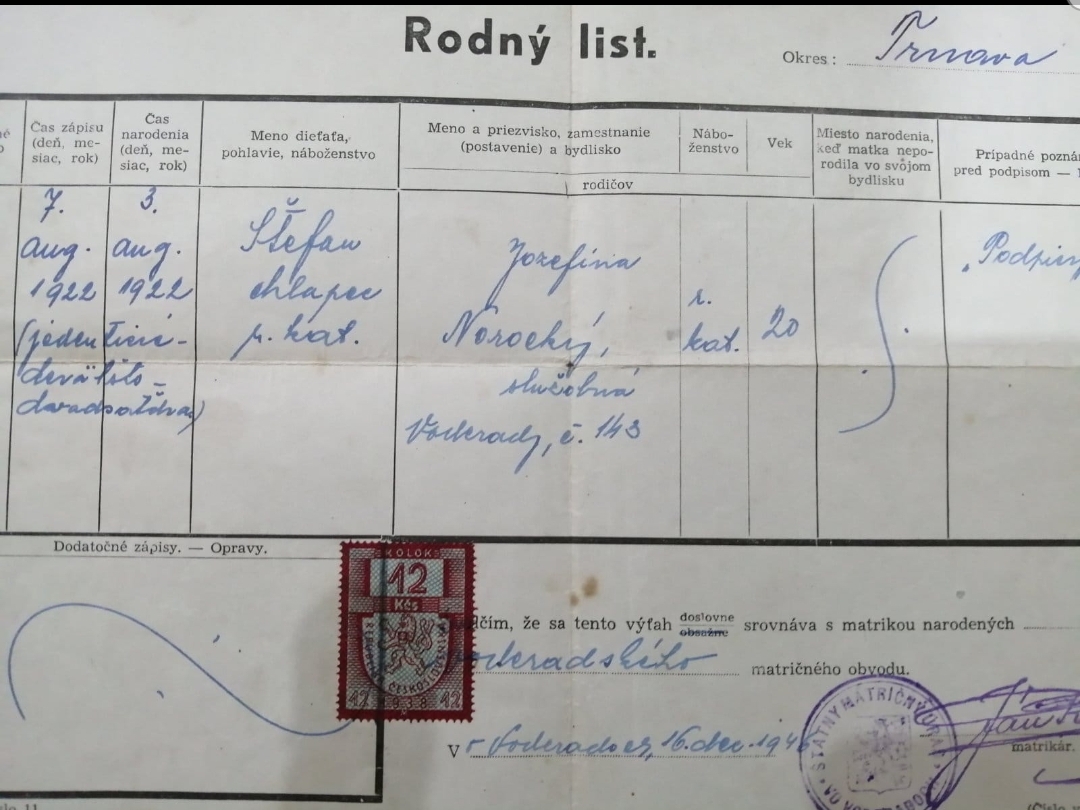 Rodný list.
Okres: Trnava
Čas zápisu
(deň, me-
siac, rok)
Čas
narodenia
(deň, me-
siac, rok)
Meno dieťaťa,
pohlavie, náboženstvo
Meno a priezvisko, zamestnanie
(postavenie) a bydlisko
rodičov
Nábo-
ženstvo
Vek
Miesto narodenia,
keď matka nepo-
rodila vo svojom
bydlisku
Prípadné pozná
pred podpisom —
7.
aug.
1922
3.
aug.
1922
(jedentisíc-
deväťsto-
dvadsaťdva)
Štefan
chlapec
r. kat.
Jozefína
Norocký,
slúžobná
Voderady, č. 143
r.
kat.
20
Podpisy
Dodatočné zápisy. — Opravy.
KOLOK
12
Kčs
ČESKOSLOVENSKÁ
12 1938 12
dčím, že sa tento výťah doslovne obsažne srovnáva s matrikou narodených
voderadského matričného obvodu.
V Voderadoch, 16. dec. 194
ŠTÁTNY MATRIČNÝ ÚRAD
matrikár.